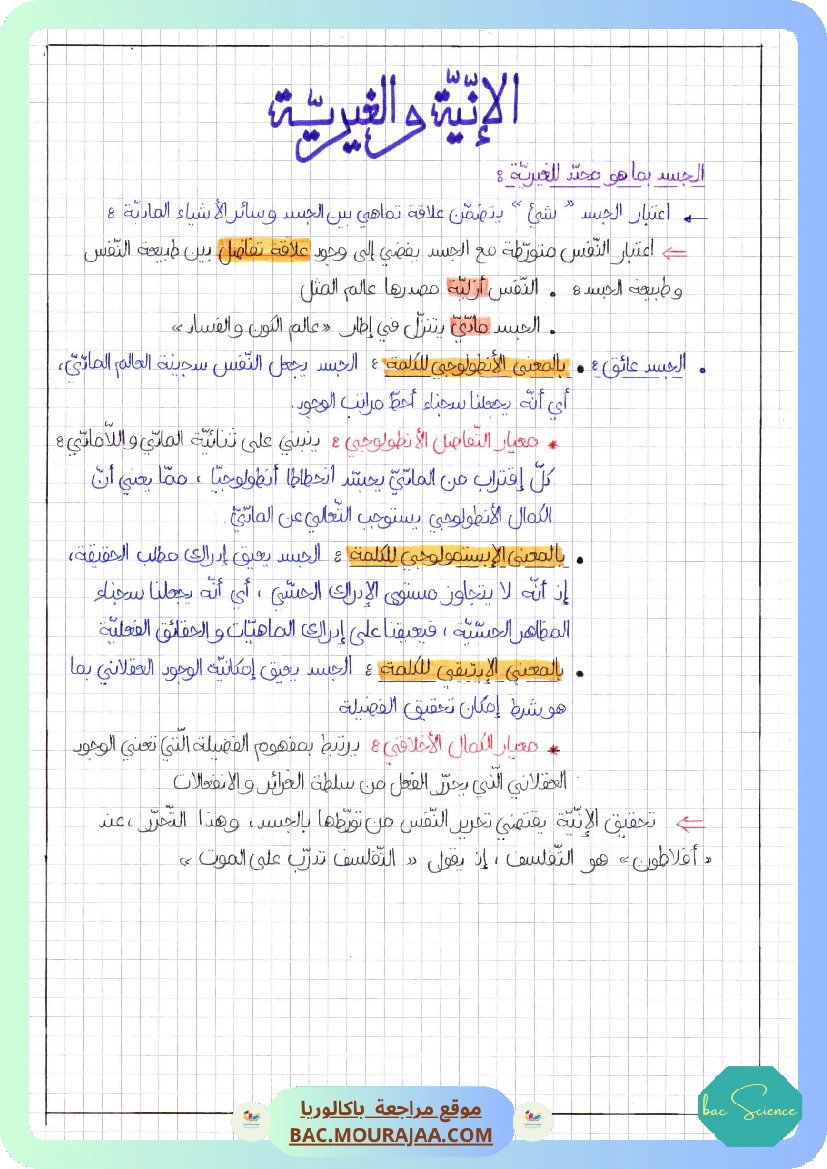 الإنّيّة والغيريّة
الجسد بما هو محدّد للغيريّة :
← اعتبار الجسد "شيئ" يتضمّن علاقة تماهي بين الجسد وسائر الأشياء الماديّة :
⇐ اعتبار النّفس متورّطة مع الجسد يفضي إلى وجود علاقة تفاضل بين طبيعة النّفس
وطبيعة الجسد : • النّفس أزليّة مصدرها عالم المثل
• الجسد مادّيّ يتنزّل في إطار «عالم الكون والفساد»
• الجسد عائق : • بالمعنى الأنطولوجي للكلمة : الجسد يجعل النّفس سجينة العالم المادّيّ،
أي أنّه يجعلنا سجناء أحطّ مراتب الوجود.
* معيار التّفاضل الأنطولوجي : ينبني على ثنائيّة المادّي واللّامادّي :
كلّ إقتراب من المادّيّ يجسّد انحطاطا أنطولوجيّا ، ممّا يعني أنّ
الكمال الأنطولوجي يستوجب التّعالي عن المادّيّ.
• بالمعنى الإبستمولوجي للكلمة : الجسد يعيق إدراك مطلب الحقيقة،
إذ أنّه لا يتجاوز مستوى الإدراك الحسّي ، أي أنّه يجعلنا سجناء
المظاهر الحسّيّة ، فيعيقنا على إدراك الماهيّات والحقائق الفعليّة
• بالمعنى الإيتيقي للكلمة : الجسد يعيق إمكانيّة الوجود العقلاني بما
هو شرط إمكان تحقيق الفضيلة
* معيار الكمال الأخلاقي : يرتبط بمفهوم الفضيلة الّتي تعني الوجود
العقلاني الّذي يحرّر الفعل من سلطة الغرائز والانفعالات
⇐ تحقيق الإنّيّة يقتضي تحرير النّفس من تورّطها بالجسد، وهذا التّحرّر ،عند
«أفلاطون» هو التّفلسف ، إذ يقول « التّفلسف تدرّب على الموت »
موقع مراجعة باكالوريا
BAC.MOURAJAA.COM
bac Science